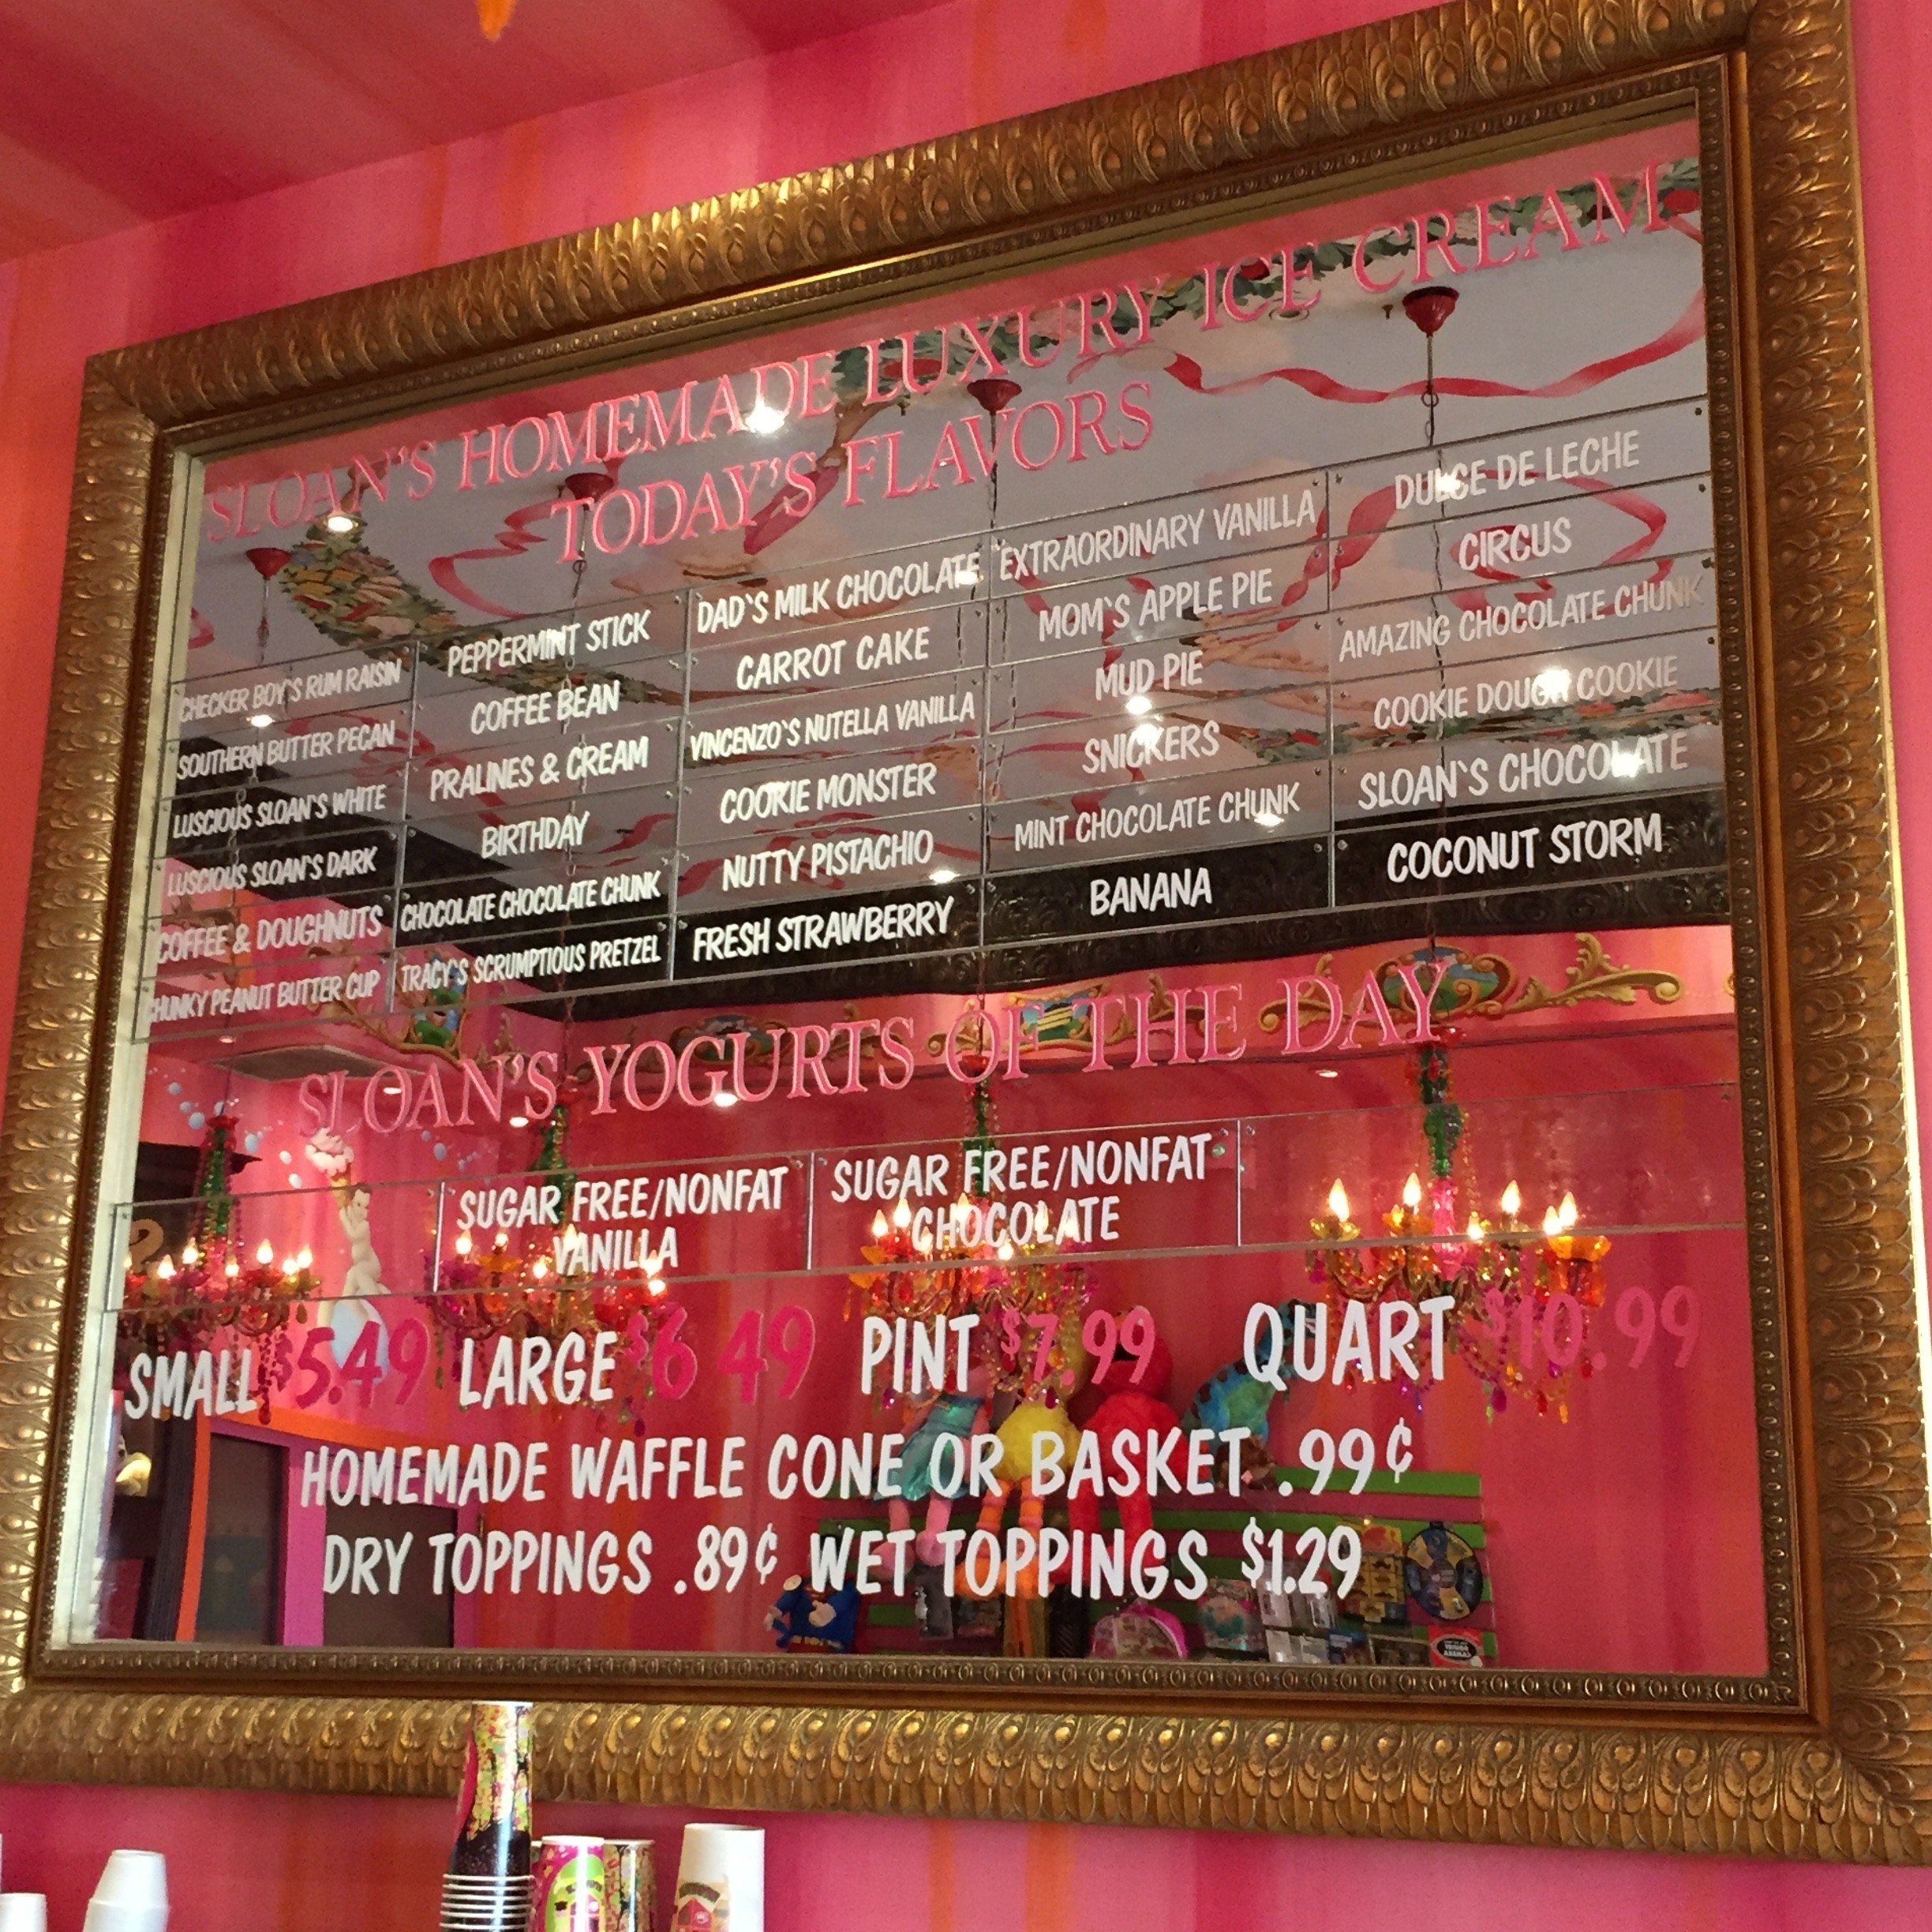 SLOAN'S HOMEMADE LUXURY ICE CREAM
TODAY'S FLAVORS
CHECKER BOY'S RUM RAISIN
SOUTHERN BUTTER PECAN
LUSCIOUS SLOAN'S WHITE
LUSCIOUS SLOAN'S DARK
COFFEE & DOUGHNUTS
CHUNKY PEANUT BUTTER CUP
PEPPERMINT STICK
COFFEE BEAN
PRALINES & CREAM
BIRTHDAY
CHOCOLATE CHOCOLATE CHUNK
TRACY'S SCRUMPTIOUS PRETZEL
DAD'S MILK CHOCOLATE
CARROT CAKE
VINCENZO'S NUTELLA VANILLA
COOKIE MONSTER
NUTTY PISTACHIO
FRESH STRAWBERRY
EXTRAORDINARY VANILLA
MOM'S APPLE PIE
MUD PIE
SNICKERS
MINT CHOCOLATE CHUNK
BANANA
DULCE DE LECHE
CIRCUS
AMAZING CHOCOLATE CHUNK
COOKIE DOUGH COOKIE
SLOAN'S CHOCOLATE
COCONUT STORM
SLOAN'S YOGURTS OF THE DAY
SUGAR FREE/NONFAT
VANILLA
SUGAR FREE/NONFAT
CHOCOLATE
SMALL $5.49 LARGE $6 49 PINT $7.99 QUART $10.99
HOMEMADE WAFFLE CONE OR BASKET .99¢
DRY TOPPINGS .89¢ WET TOPPINGS $1.29